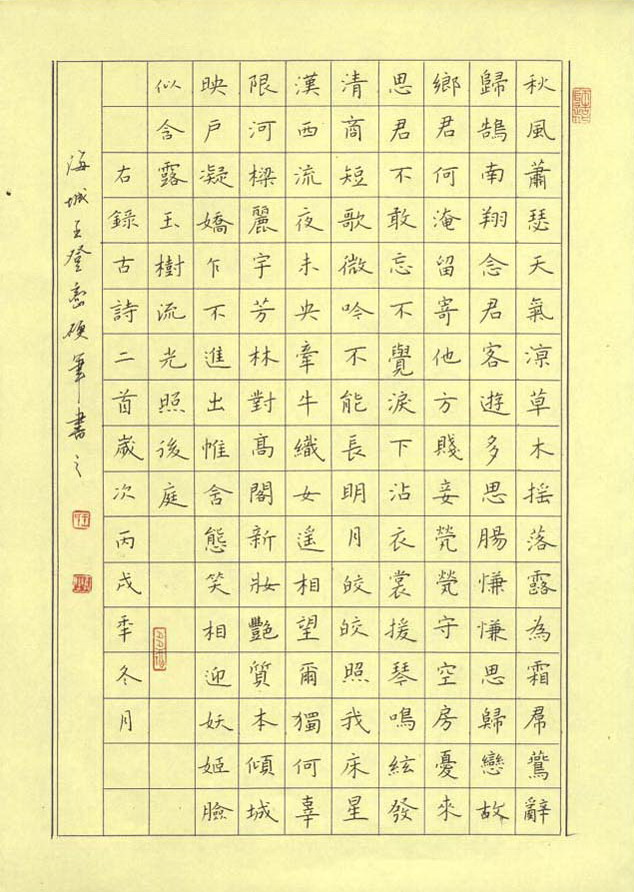 秋風蕭瑟天氣涼草木摇落露為霜羣鷰辭
歸鵠南翔念君客遊多思腸慊慊思歸戀故
鄉君何淹留寄他方賤妾煢煢守空房憂來
思君不敢忘不覺淚下沾衣裳援琴鳴絃發
清商短歌微吟不能長明月皎皎照我床星
漢西流夜未央牽牛織女遙相望爾獨何辜
限河樑麗宇芳林對高閣新妝艷質本傾城
映戶凝嬌乍不進出帷含態笑相迎妖姬臉
似含露玉樹流光照後庭
右錄古詩二首歲次丙戌年冬月
海城王登巒硬筆書之